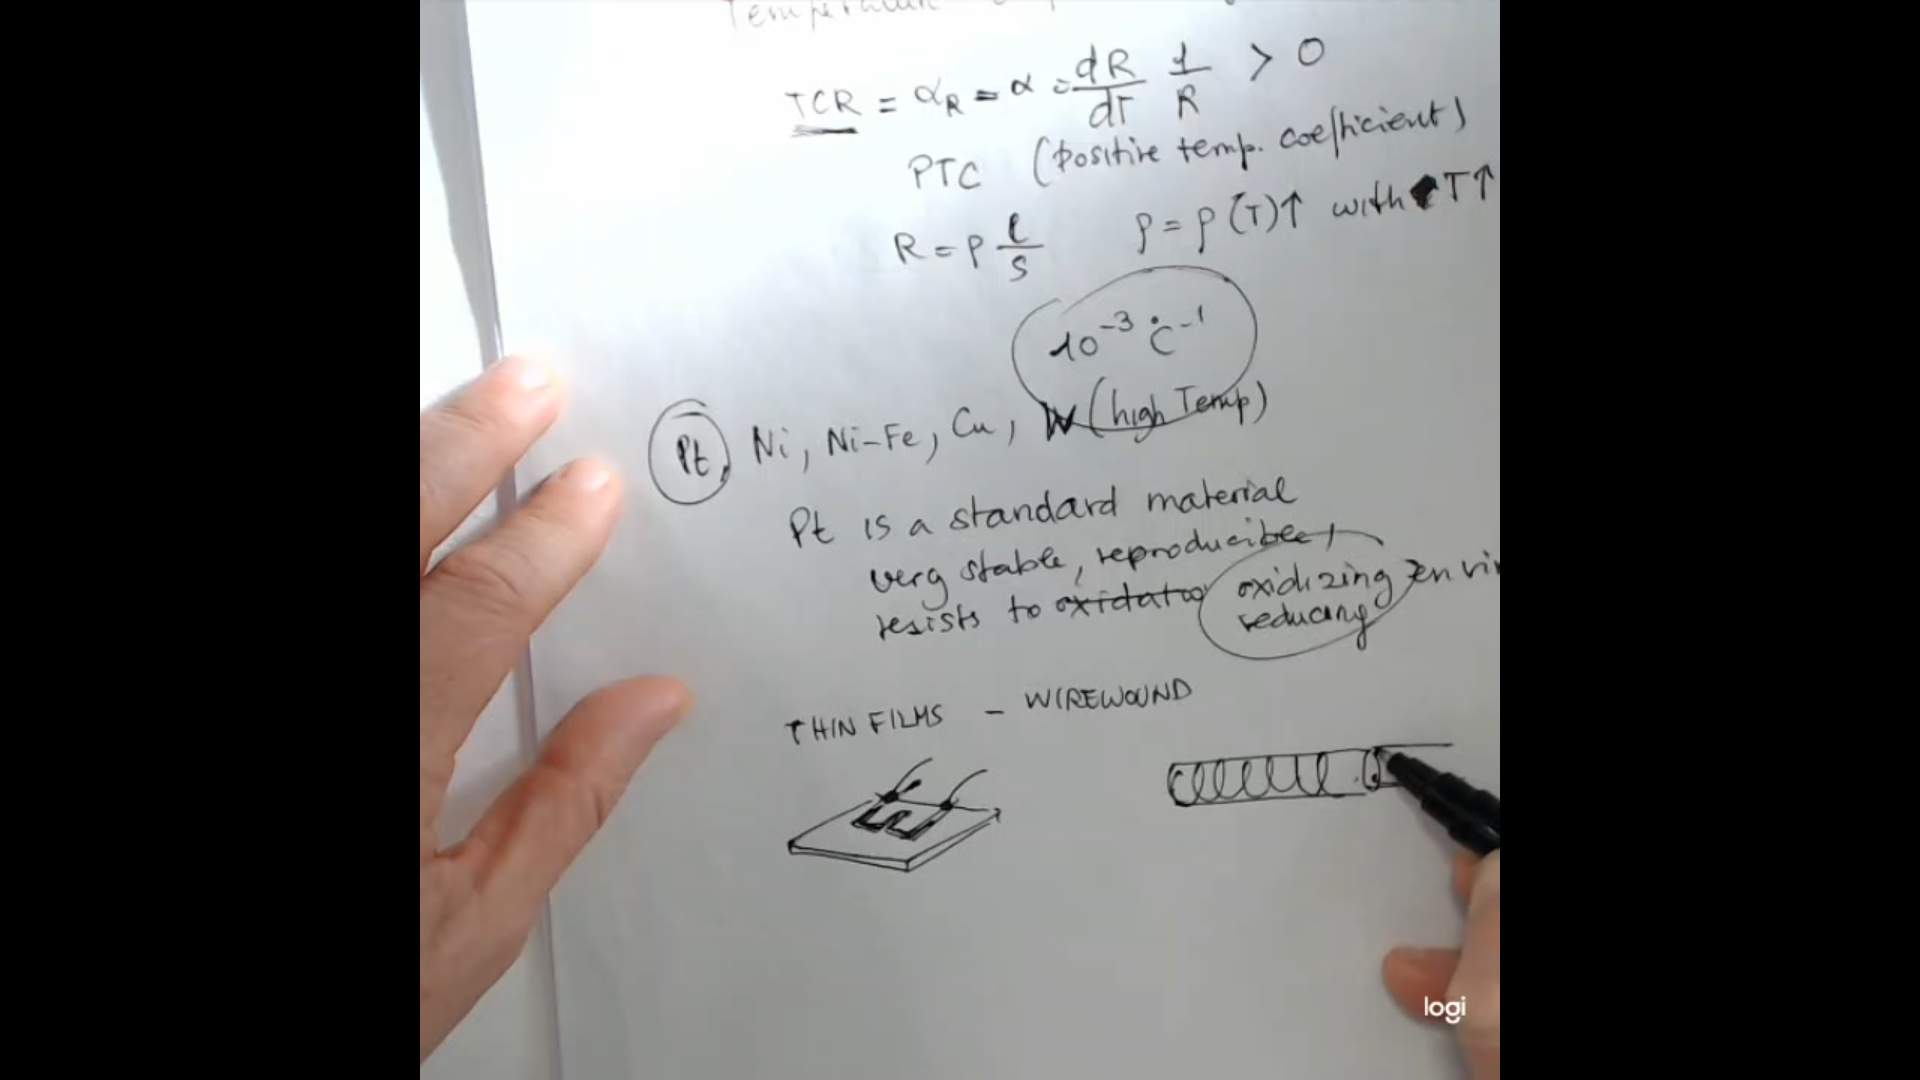 TCR = αR = α = dR/dT 1/R > 0
PTC (positive temp. coefficient)
R = ρ l/S ρ = ρ(T)↑ with T↑
10⁻³ °C⁻¹
Pt, Ni, Ni-Fe, Cu, W (high Temp)
Pt is a standard material
very stable, reproducible,
resists to oxidizing envi
reducing
THIN FILMS - WIREWOUND
logi